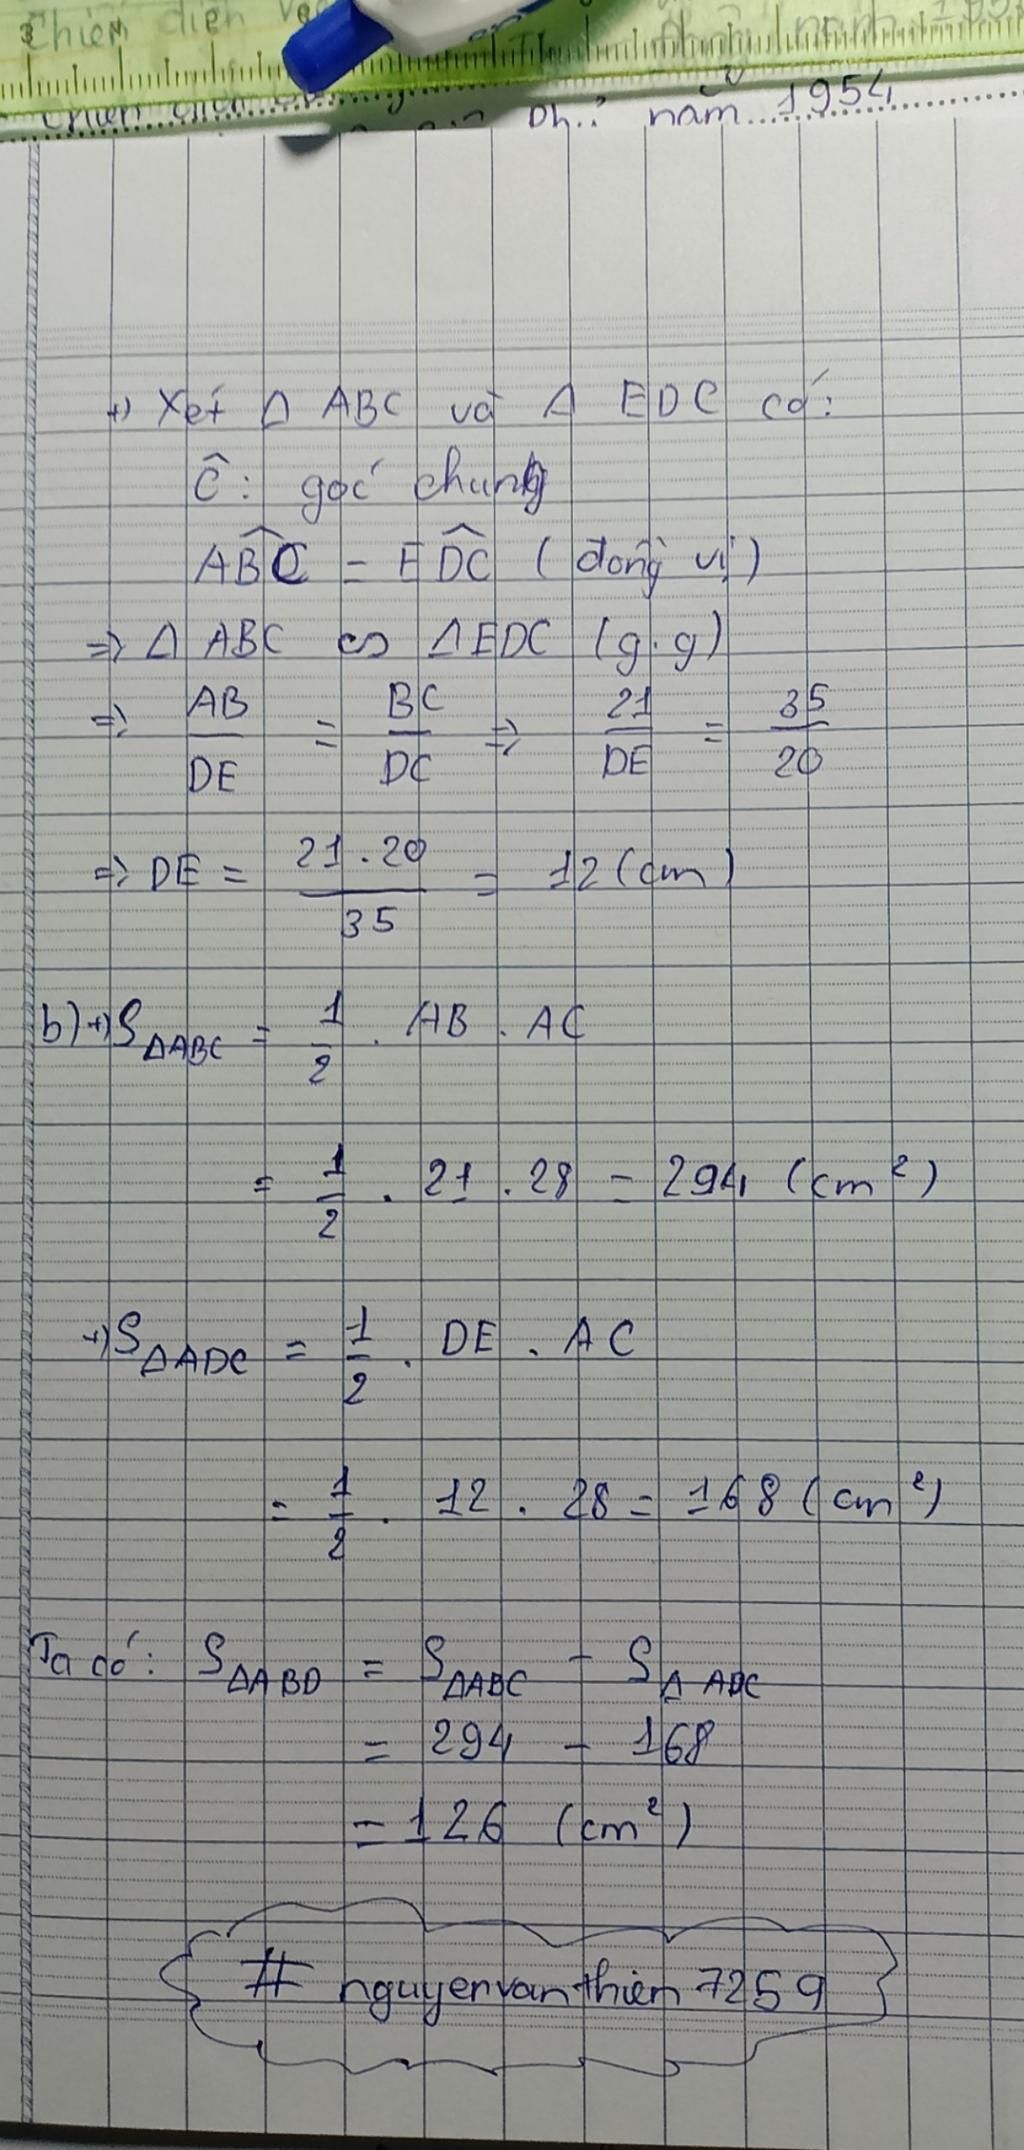 năm 1954
+) Xét Δ ABC và Δ EDC có:
Ĉ: góc chung
AB̂C = ED̂C (đồng vị)
=> Δ ABC ∽ Δ EDC (g.g)
=> AB/DE = BC/DC => 21/DE = 35/20
=> DE = 21.20/35 = 12 (cm)
b) +) SΔABC = 1/2 . AB . AC
= 1/2 . 21 . 28 = 294 (cm²)
+) SΔADC = 1/2 . DE . AC
= 1/2 . 12 . 28 = 168 (cm²)
Ta có: SΔABD = SΔABC - SΔADC
= 294 - 168
= 126 (cm²)
# nguyenvanthien7259